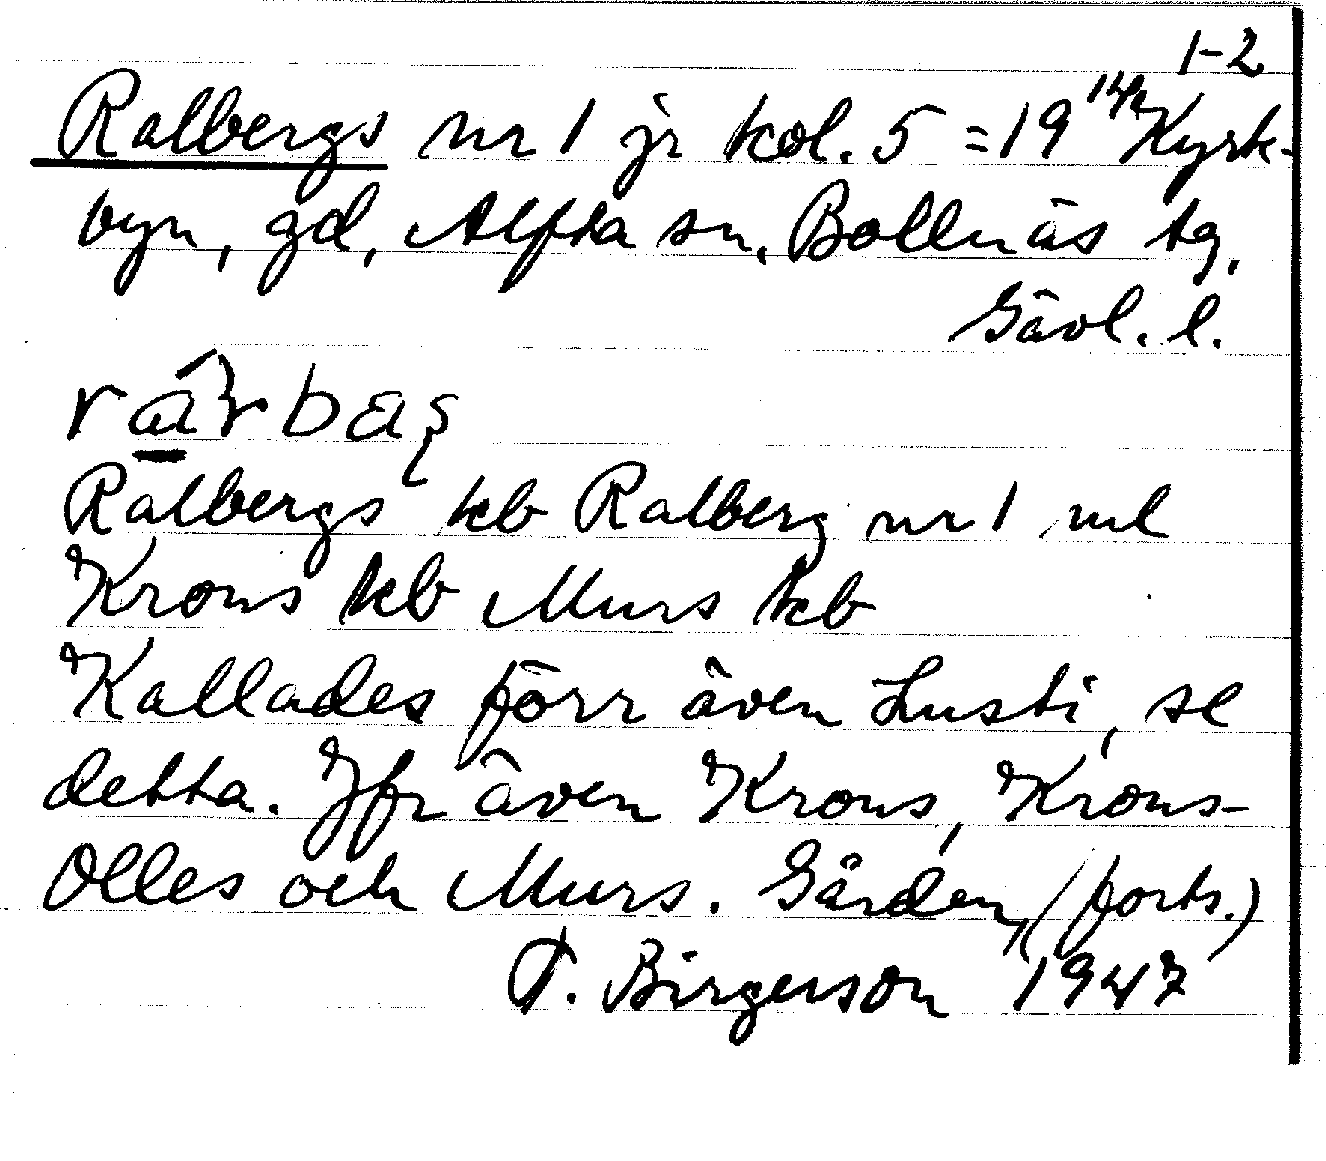 1-2
Ralbergs nr 1 jr kol. 5 = 19 14/2 Kyrk-
byn, gd, Alfta sn, Bollnäs tg,
Gävl. l.
Ralbergs kb Ralberg nr 1 ml
Krons kb Murs kb
Kallades förr även Lusti, se
detta. Jfr även Krons, Krons-
Olles och Murs. Gården, (forts.)
T. Birgerson 1947